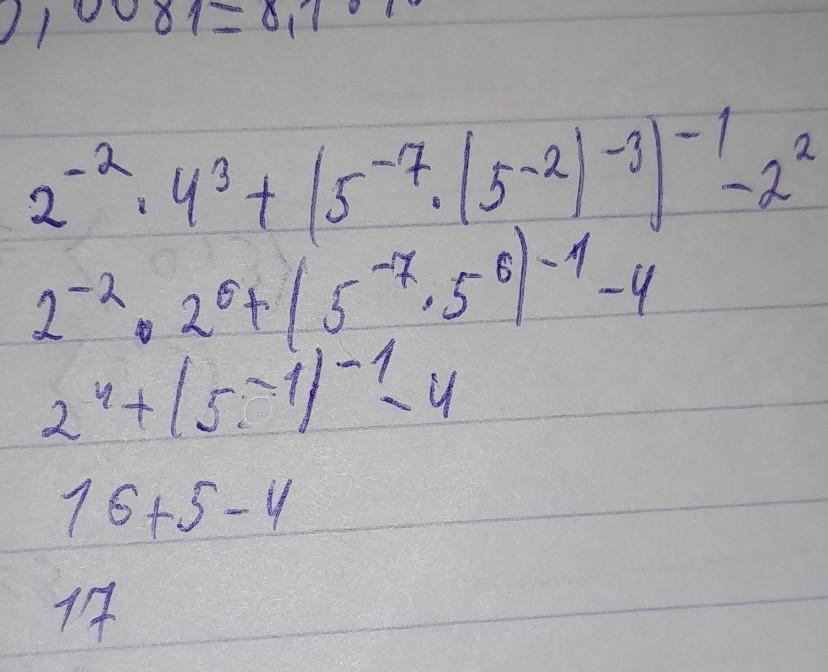 0,0081=8,1·10
2^{-2} · 4^3 + (5^{-7} · (5^{-2})^{-3})^{-1} - 2^2
2^{-2} · 2^6 + (5^{-7} · 5^6)^{-1} - 4
2^4 + (5^{-1})^{-1} - 4
16+5-4
17